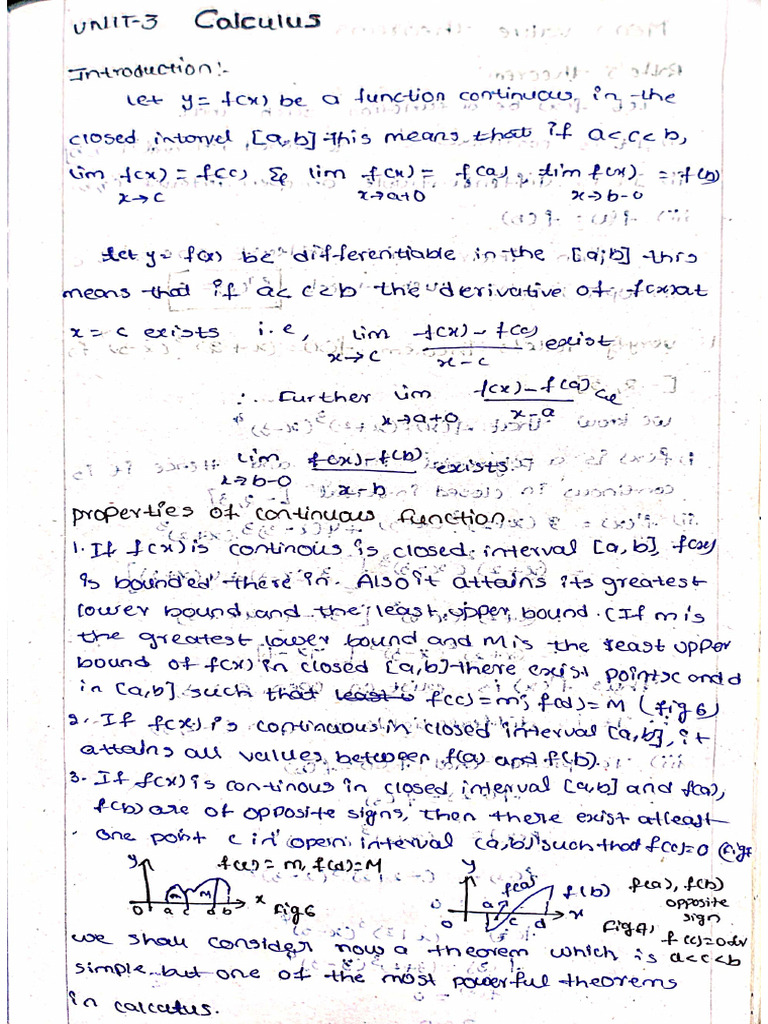 UNIT-3 Calculus
Introduction:-
let y = f(x) be a function continuous in the
closed intorvel [a,b] this means that if a<c<b,
lim f(x) = f(c), & lim f(x) = f(a), lim f(x) = f(b)
x→c x→a+0 x→b-0
let y = f(x) be differentiable in the [a,b] this
means that if a< c<b the derivative of f(x) at
x = c exists i.e, lim f(x) - f(c) exist
x→c x-c
∴ Further lim f(x) - f(a)
x→a+0 x-a
lim f(x) - f(b) exists.
x→b-0 x-b
properties of continuous function
1. If f(x) is continous is closed interval [a,b], f(x)
is bounded there in. Also it attains its greatest
lower bound and the least upper bound. (If m is
the greatest lower bound and M is the least upper
bound of f(x) in closed [a,b] there exist points c and d
in [a,b] such that f(c)=m; f(d)=M (fig 6)
2. If f(x) is continuous in closed interval [a,b], it
attains all values between f(a) and f(b).
3. If f(x) is continous in closed interval [a,b] and f(a),
f(b) are of opposite signs, then there exist atleast
one point c in open interval (a,b) such that f(c)=0 (fig
y f(c) = m, f(d)=M y f(a) f(b) f(a), f(b)
opposite
sign
m M a c d x
0 a c d b x fig 6 0 fig 7, f(c)=0
a<c<b
we shall consider now a theorem which is
simple but one of the most powerful theorems
in calculus.